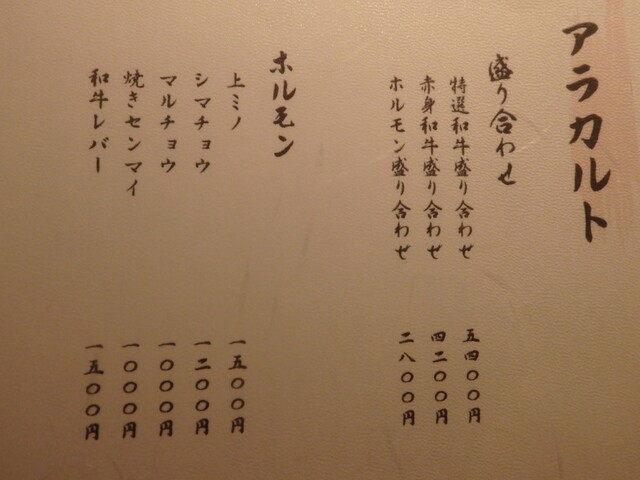 アラカルト
盛り合わせ
特選和牛盛り合わせ 五四〇〇円
赤身和牛盛り合わせ 四二〇〇円
ホルモン盛り合わせ 二八〇〇円
ホルモン
上ミノ 一五〇〇円
シマチョウ 一二〇〇円
マルチョウ 一〇〇〇円
焼きセンマイ 一〇〇〇円
和牛レバー 一五〇〇円